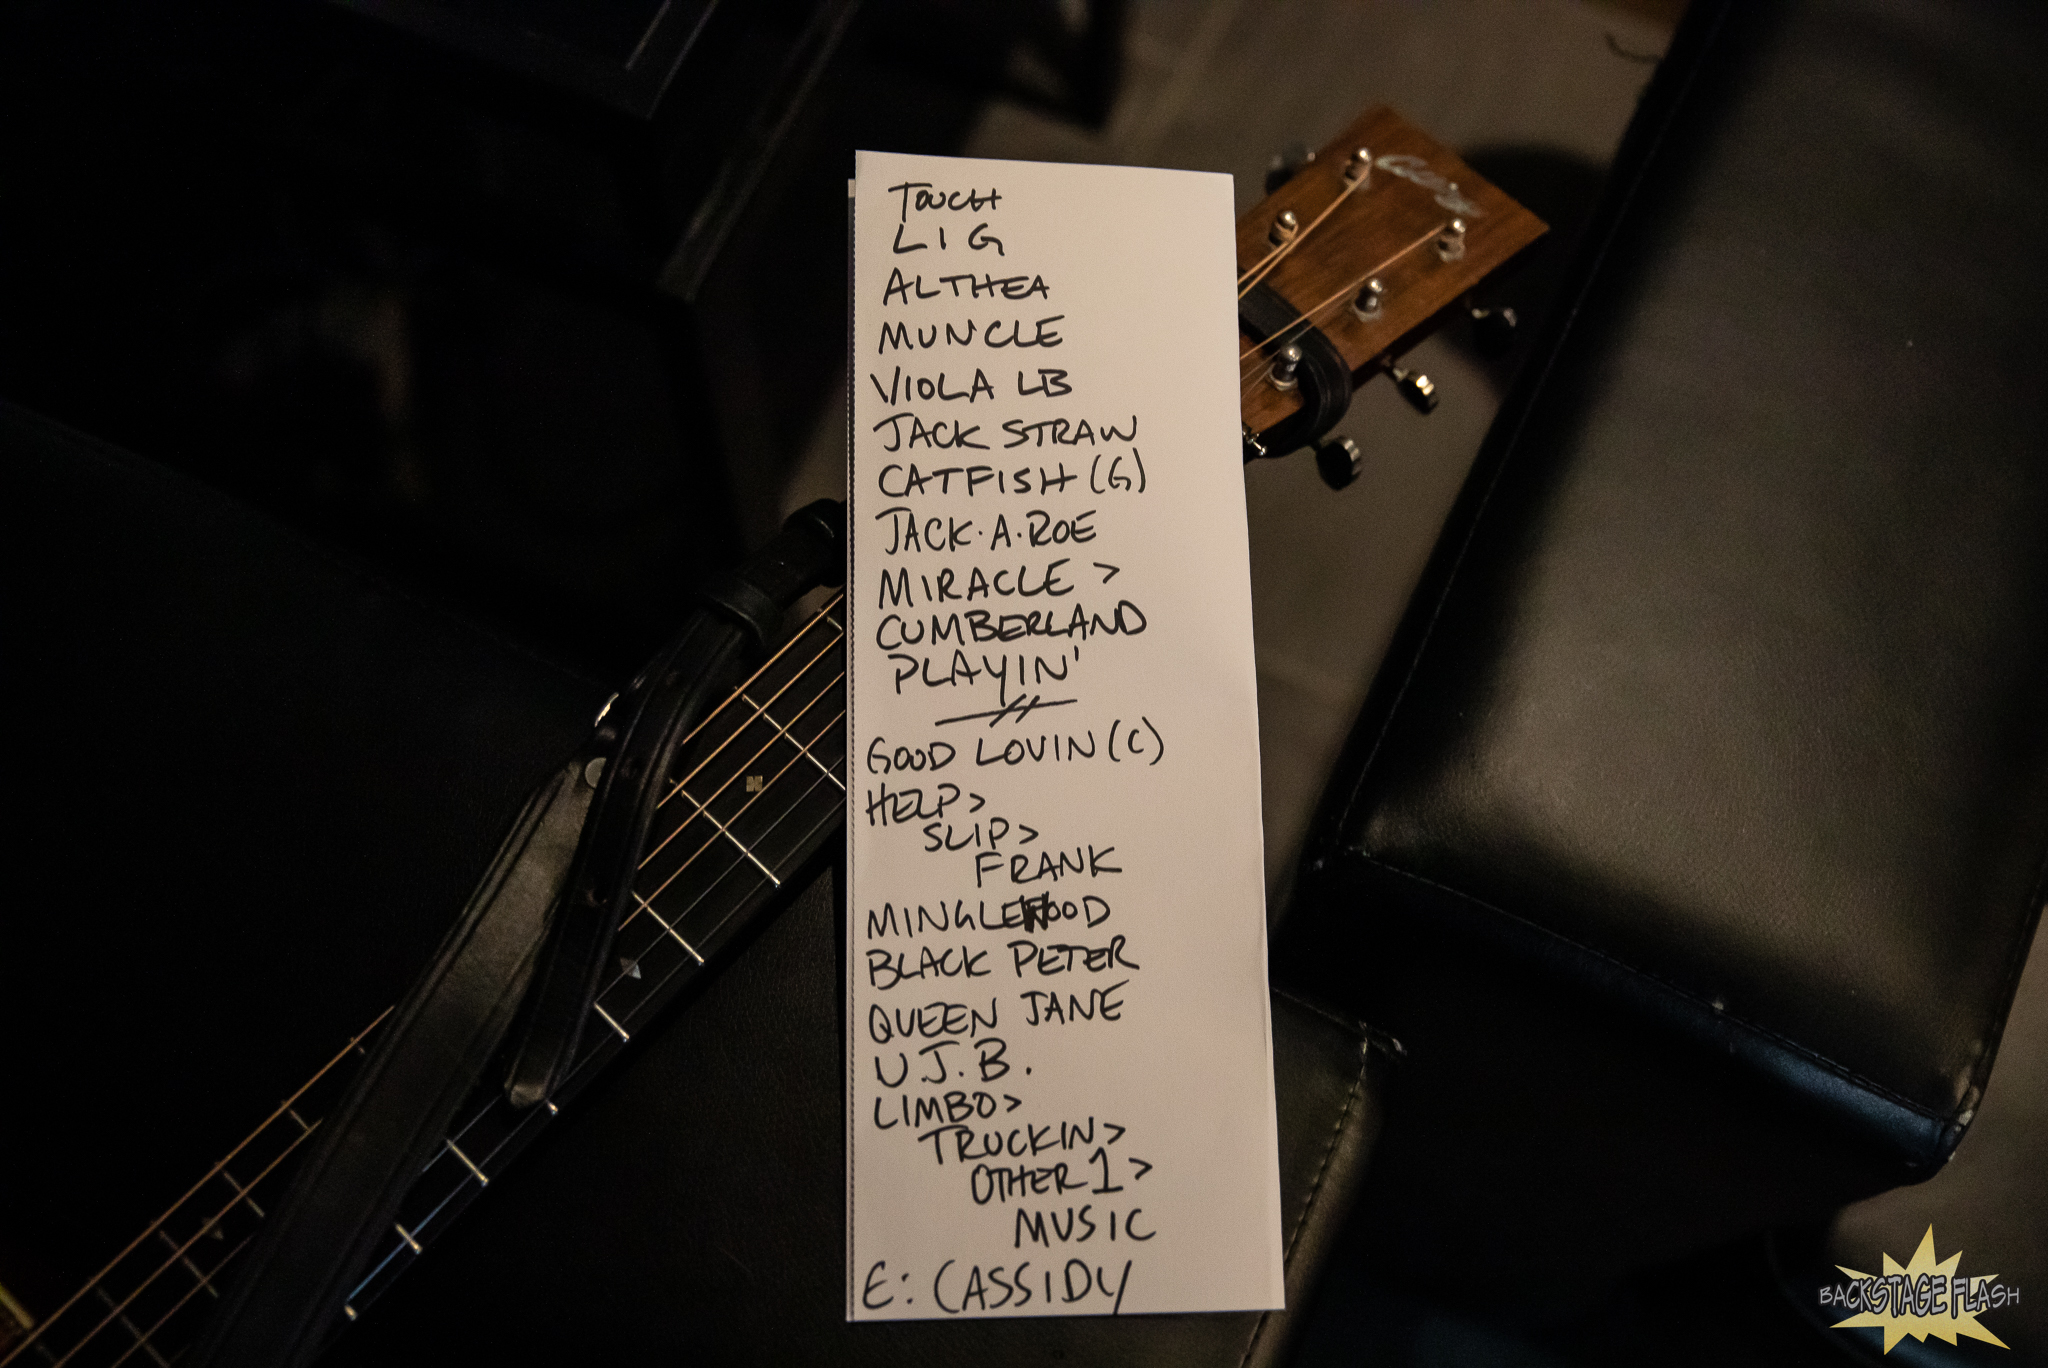 TOUCH
L I G
ALTHEA
MUNCLE
VIOLA LB
JACK STRAW
CATFISH (G)
JACK·A·ROE
MIRACLE >
CUMBERLAND
PLAYIN'
GOOD LOVIN (C)
HELP>
SLIP>
FRANK
MINGLEWOOD
BLACK PETER
QUEEN JANE
U.J.B.
LIMBO>
TRUCKIN>
OTHER 1 >
MUSIC
E: CASSIDY
BACKSTAGE FLASH